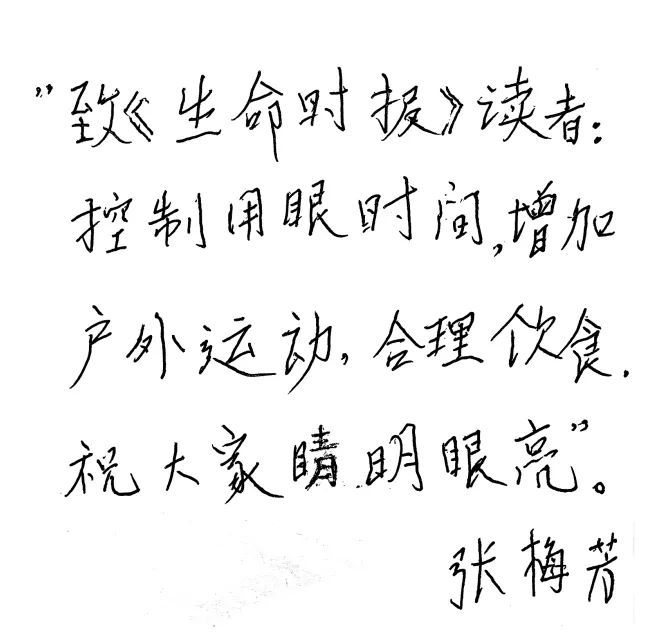 ”致《生命时报》读者：
控制用眼时间，增加
户外运动，合理饮食．
祝大家睛明眼亮”。
张梅芳